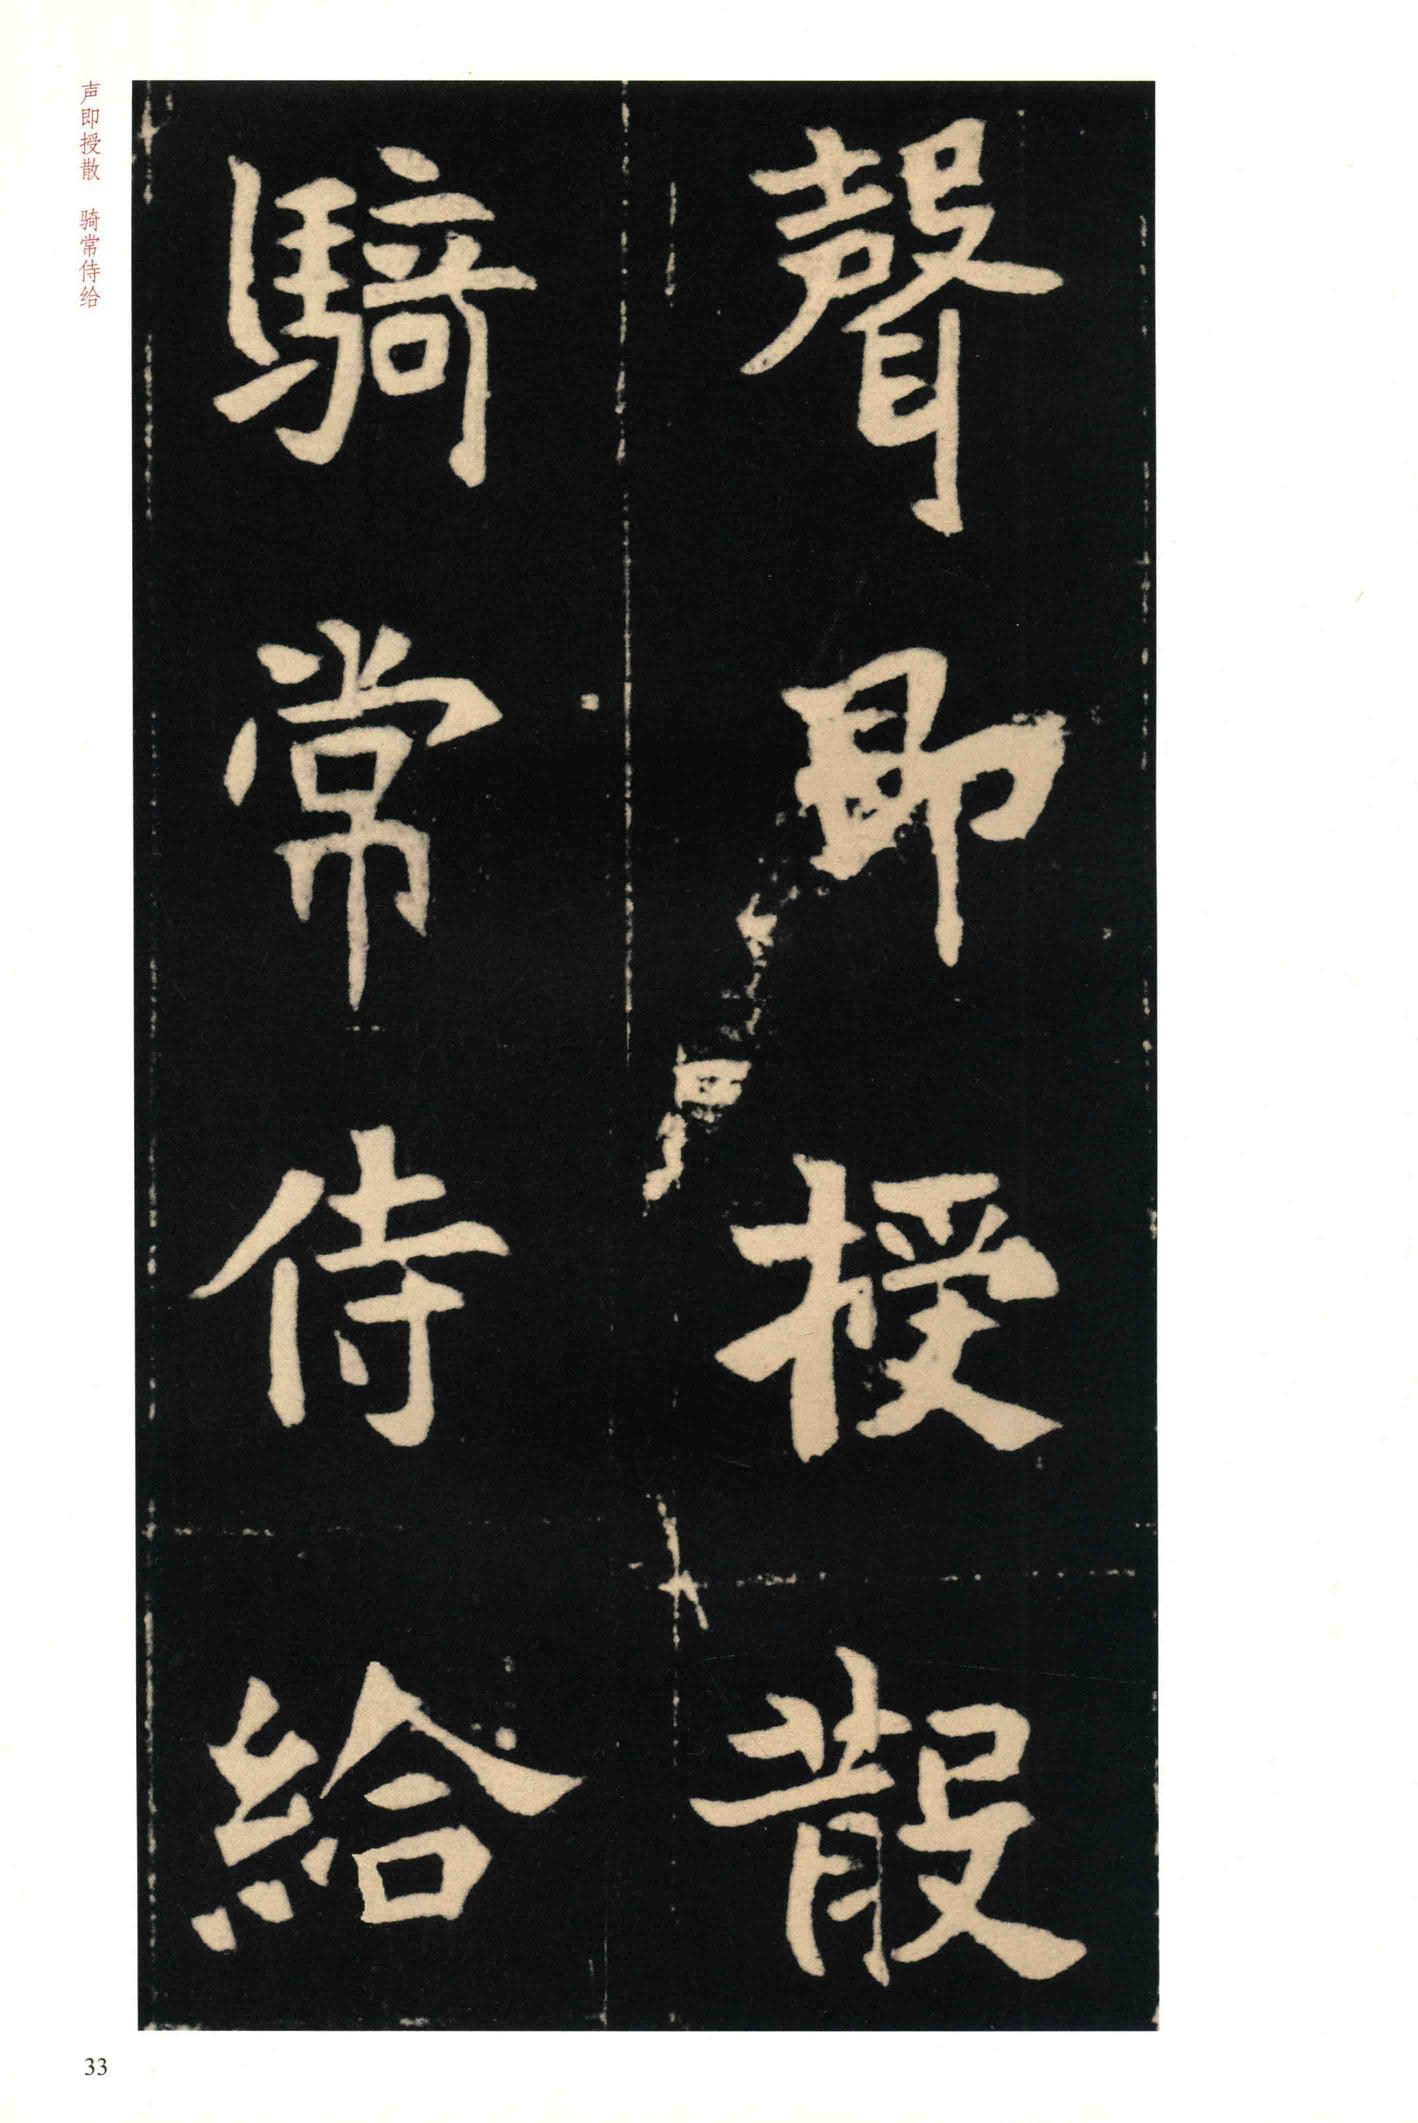 聲即授散
騎常侍給
声即授散　骑常侍给
33